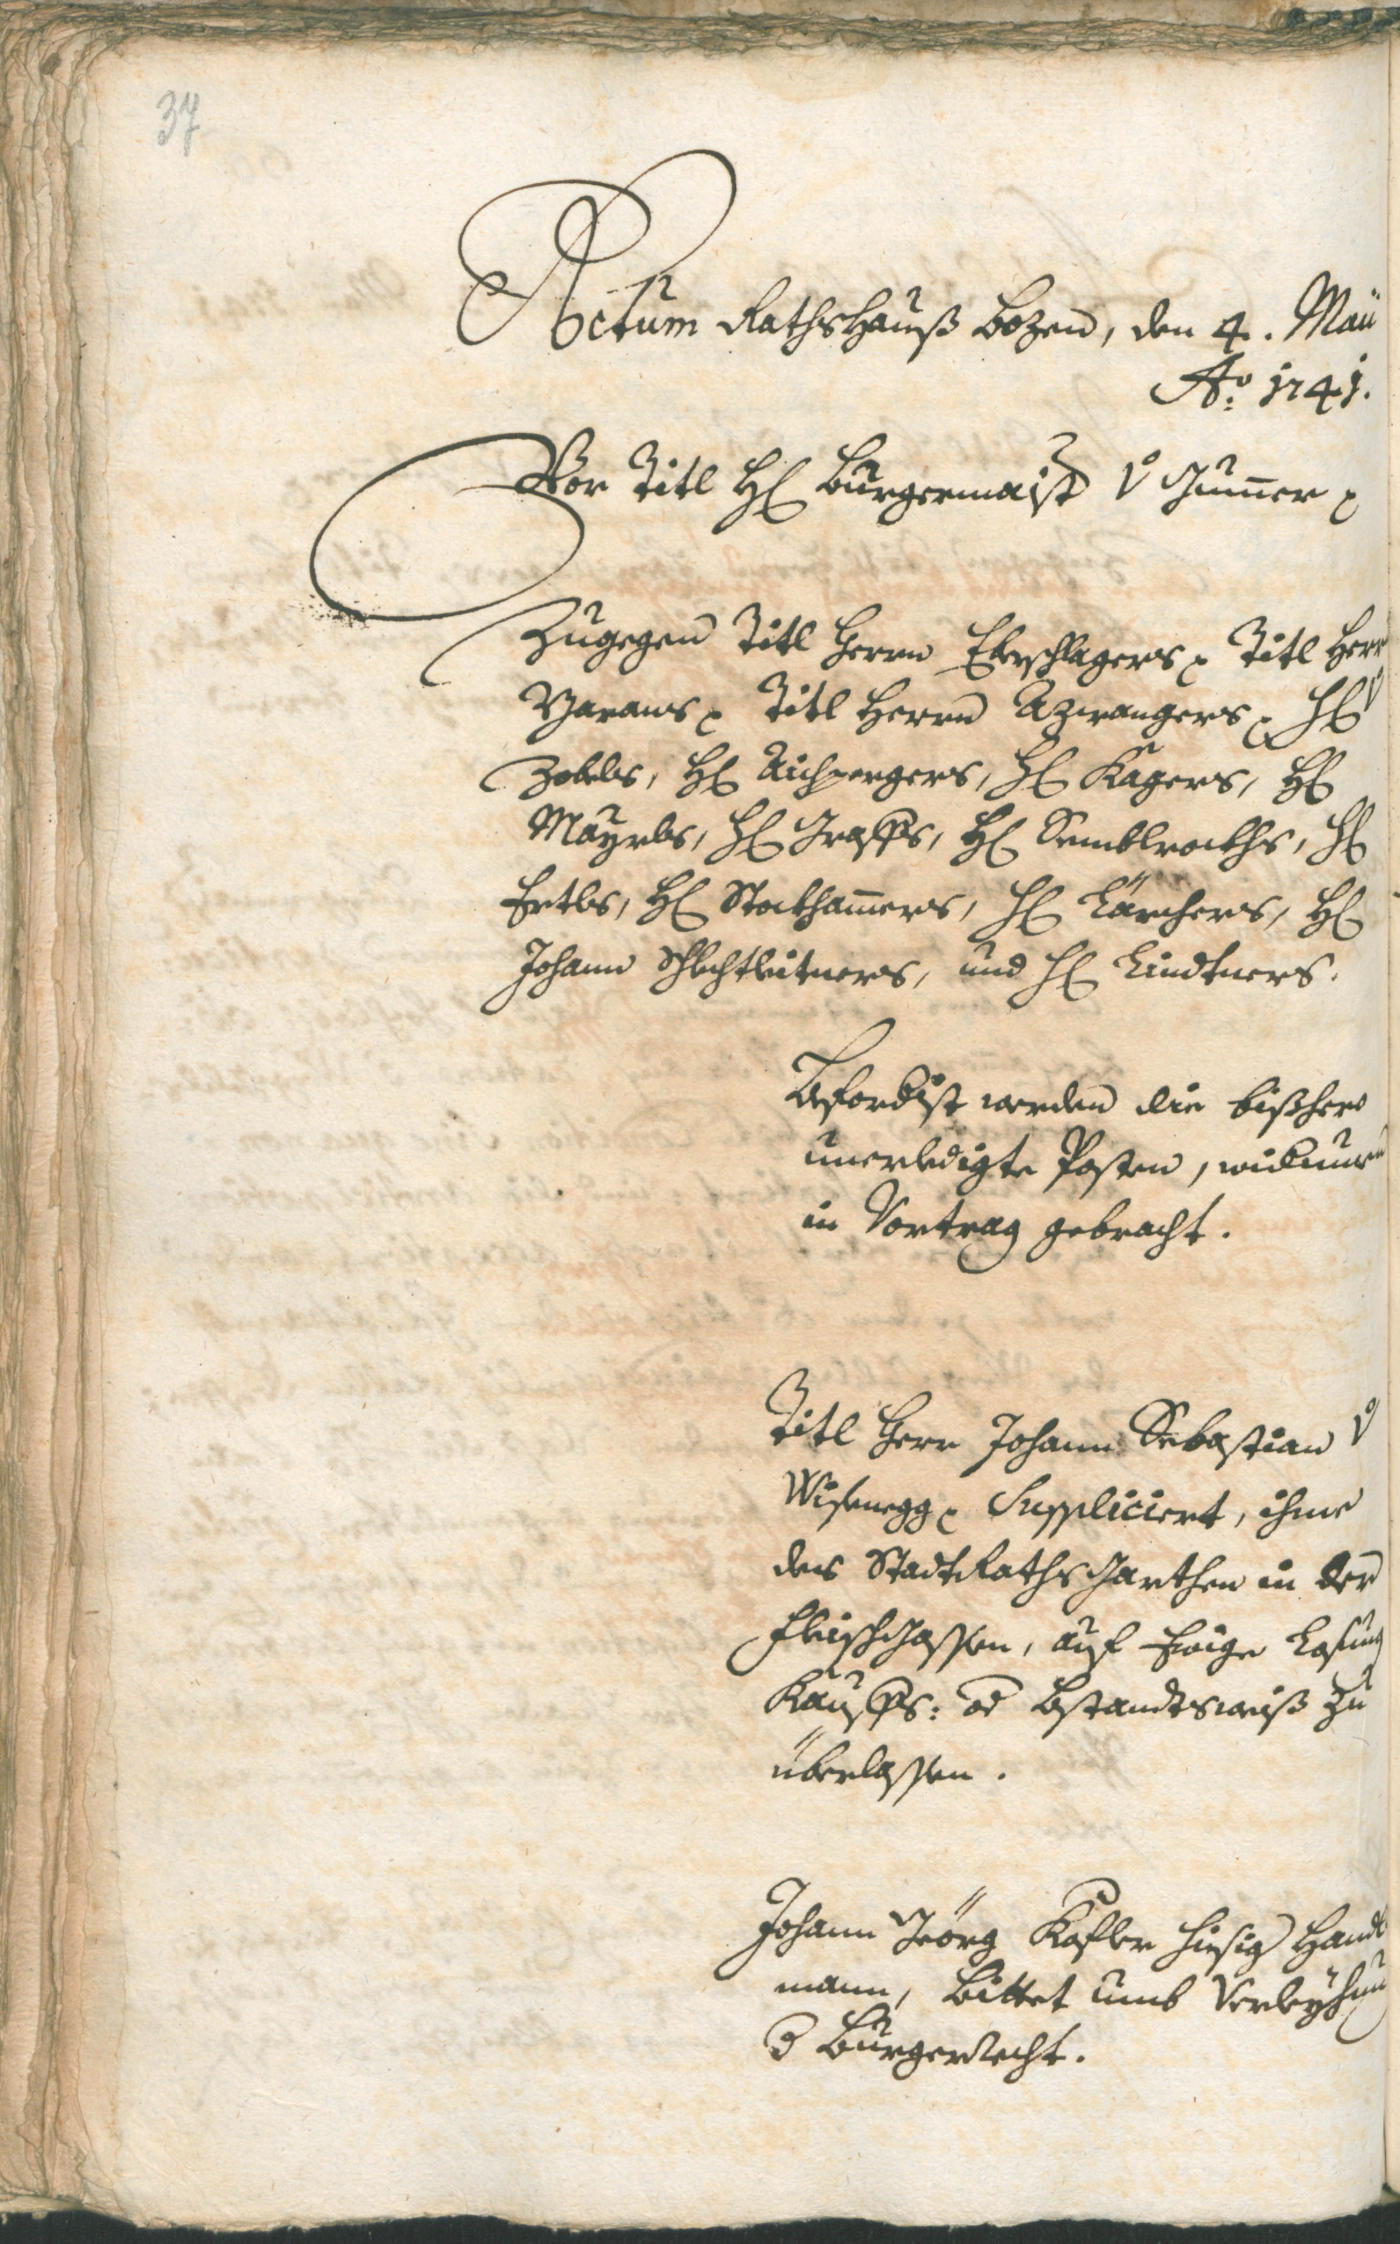 37
Actum Rathshauß Bozen, den 4. Maii
Ao: 1741.
Vor Titl H: Burgermaist v: Gumer p
Zugegen Titl Herrn Eberschlagers p Titl Herrn
Titl Herrn Azwangers p H: v:
Zobels, H: Aichpergers, H: Kagers, H:
Mayrls, H: Graffs, H: H:
Ertls, H: Stockhamers, H: Lärchers, H:
Johann Schlechtleitners, und H: Lindtners.
werden die bißhero
unerledigte Posten, widerumen
in Vortrag gebracht.
Titl Herr Johann Sebastian v:
Wisenegg p Suppliciert, ihme
des StadtRathsGarthen in der
Fleischgassen, auf Ewige Losung
Kauffs: od Bstandtsweiß zu
überlassen.
Johann Geörg Kofler hiesig Handl
mann, Bittet umb Verleyhung
d Burgerrecht.